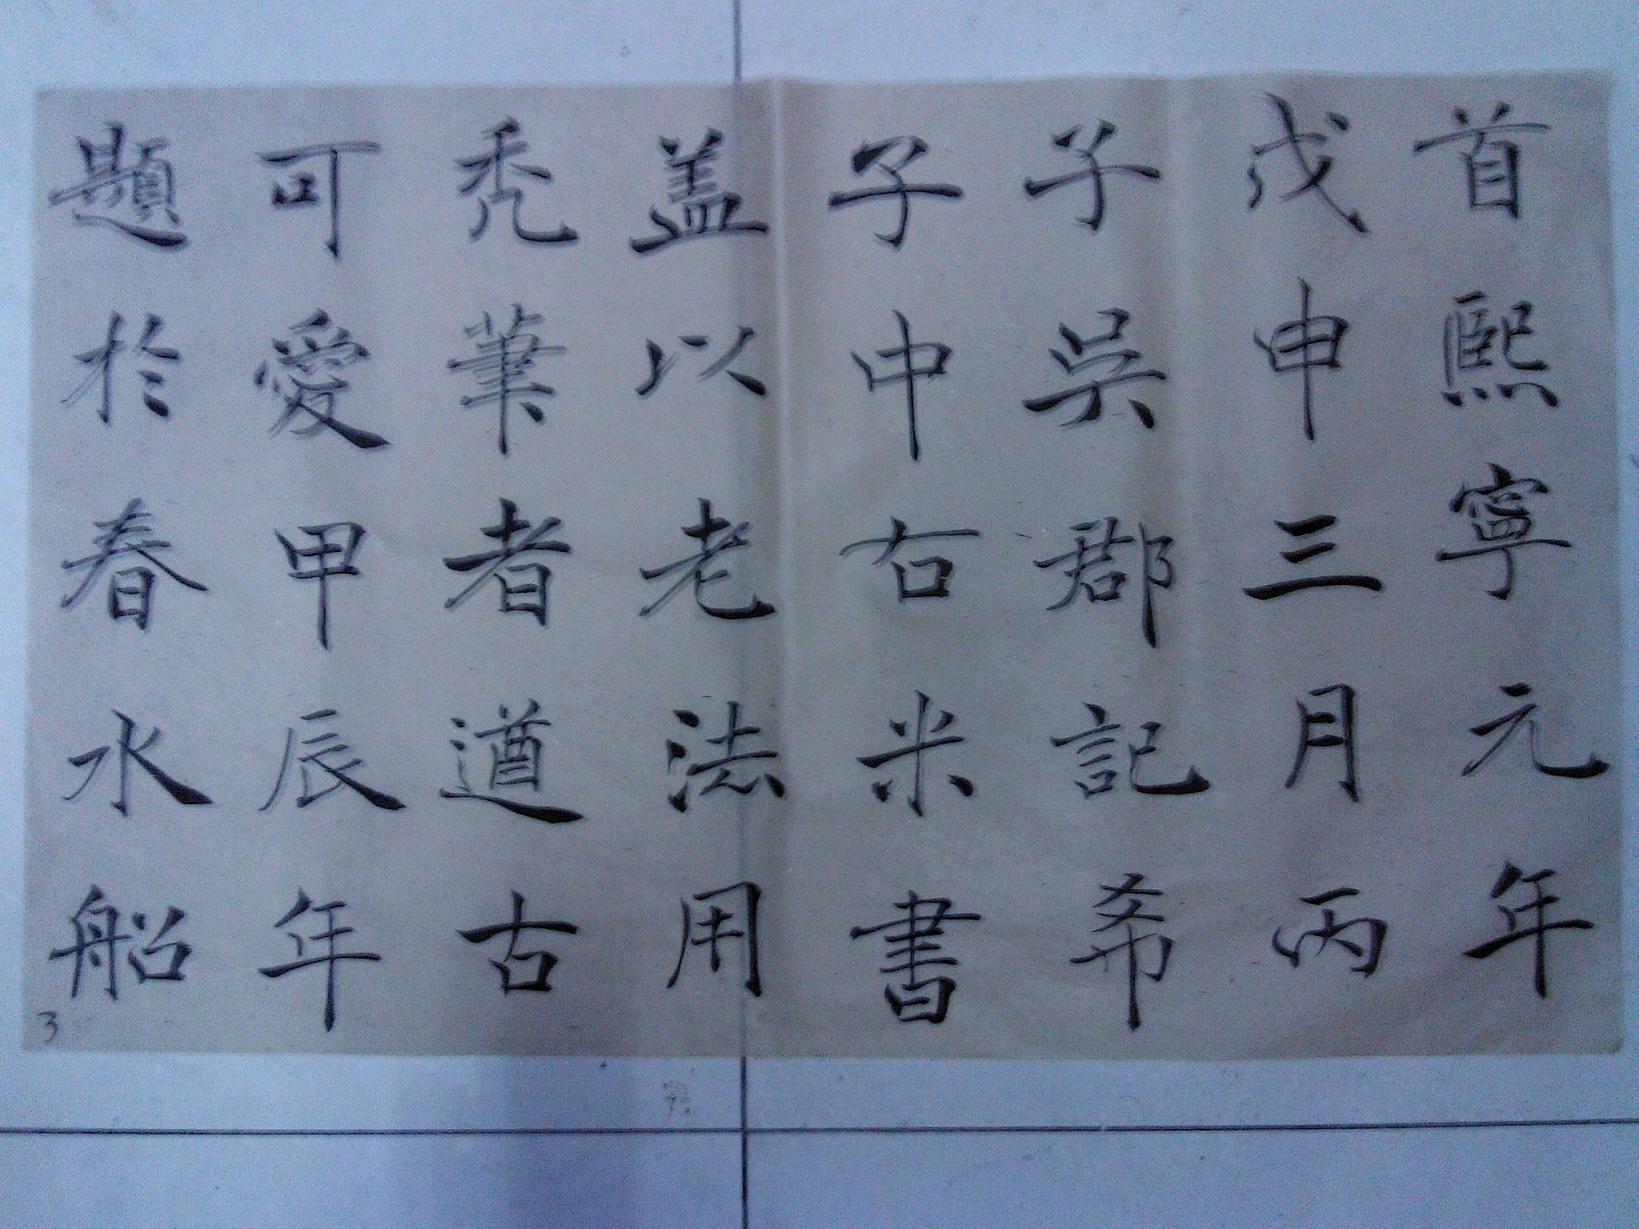 首熙寧元年
戊申三月丙
子吳郡記希
子中右米書
盖以老法用
禿筆者遒古
可愛甲辰年
題於春水船
3